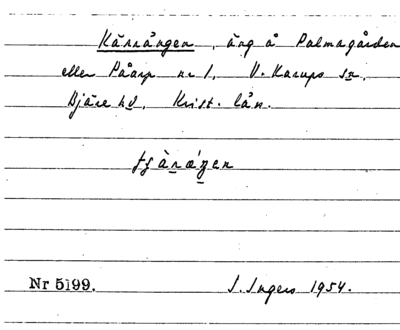 Kärrängen, äng å Palmagården
eller Påarp nr 1, V. Karups sn,
Bjäre hd, Krist. län.
Nr 5199. I. Ingers 1954.